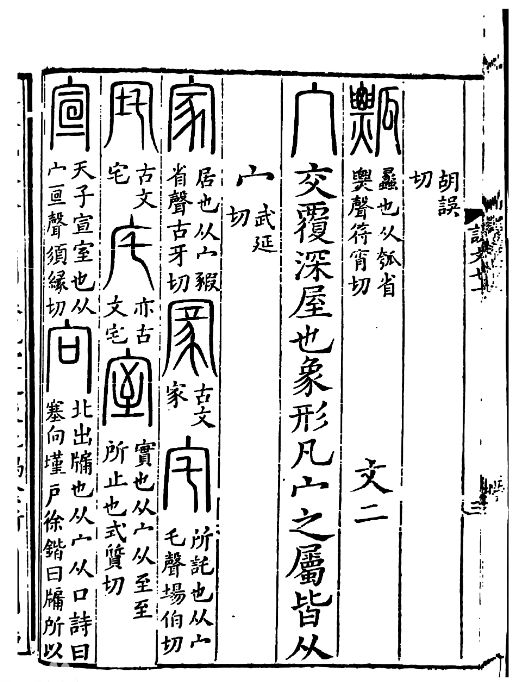 胡誤
切
瓢
蠡也从瓠省
𤐫聲符宵切
文二
宀交覆深屋也象形凡宀之屬皆从
宀
武延
切
家
居也从宀豭
省聲古牙切
家
古文
家
宅
所託也从宀
乇聲場伯切
宅
古文
宅
宅
亦古
文宅
室
實也从宀从至至
所止也式質切
宣
天子宣室也从
宀亘聲須緣切
向
北出牖也从宀从口詩曰
塞向墐戶徐鍇曰牖所以